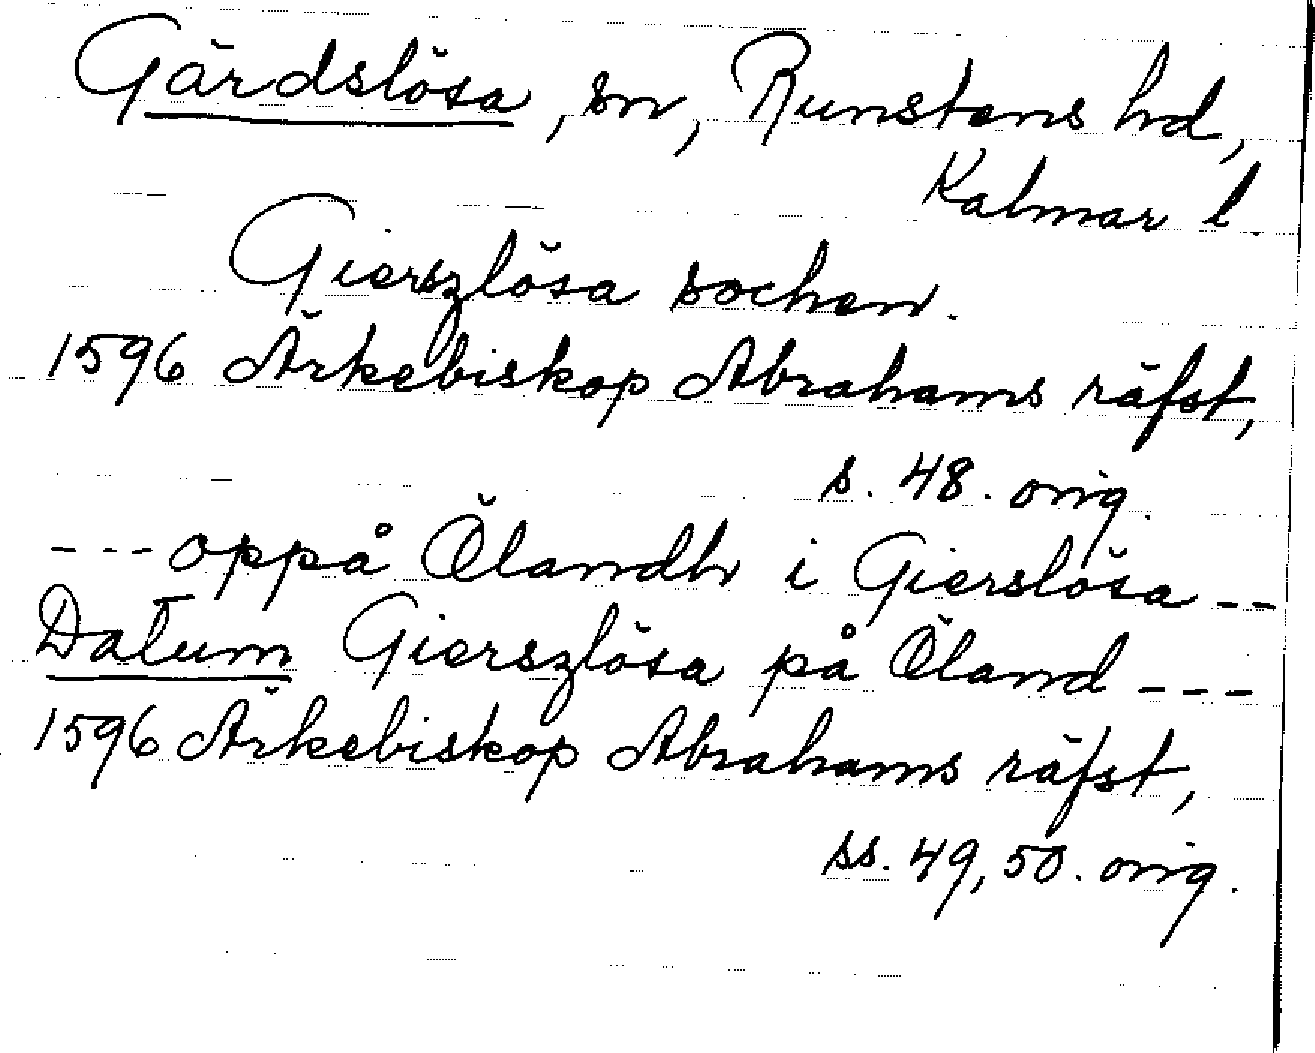 Gärdslösa, sn, Runstens hd,
Kalmar l.
Gierszlösa sochen.
1596 Ärkebiskop Abrahams räfst,
s. 48. orig.
--- oppå Ölandh i Gierslösa --
Datum Gierszlösa på Öland ---
1596 Ärkebiskop Abrahams räfst,
ss. 49, 50. orig.